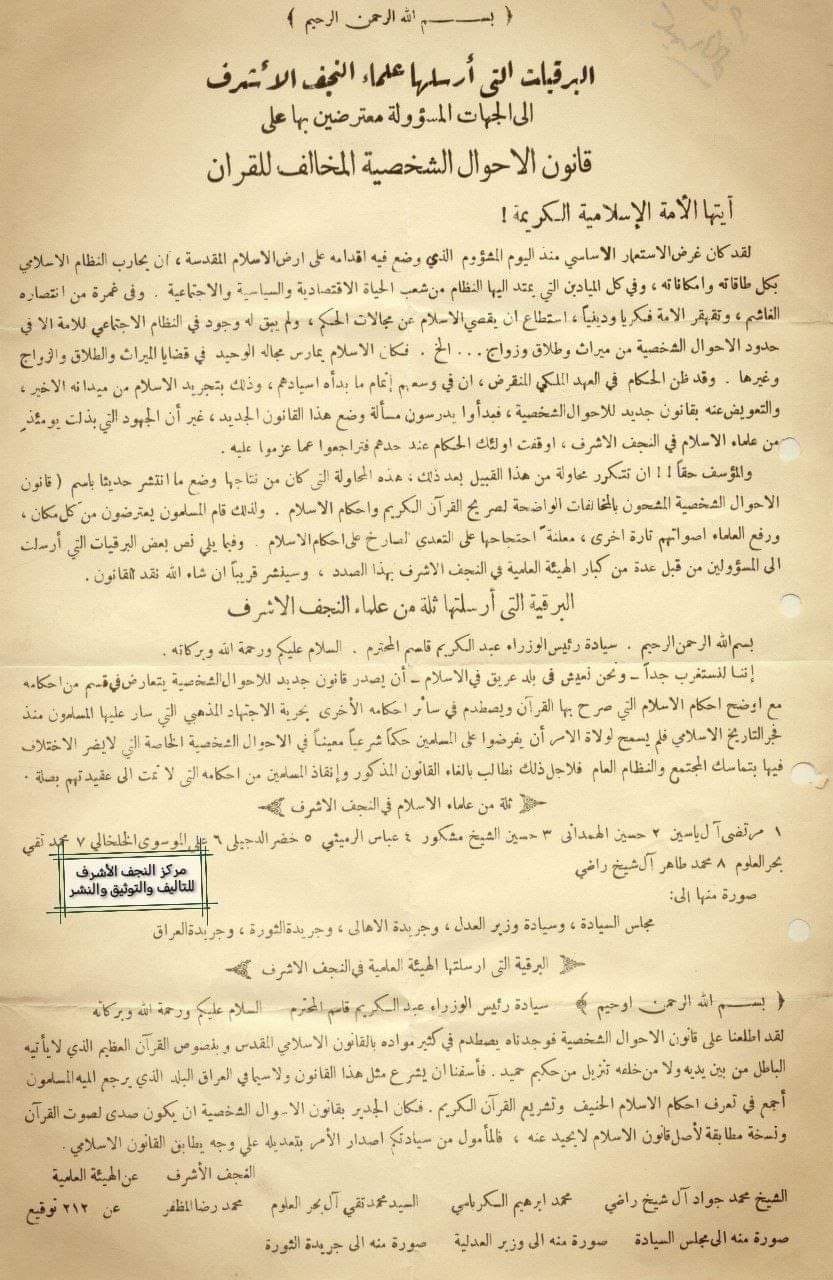 ﴿ بســـــم الله الرحمن الرحيم ﴾
البرقيات التى أرسلها علماء النجف الأشرف
الى الجهات المسؤولة معترضين بها على
قانون الاحوال الشخصية المخالف للقران
آيتها الأمة الإسلامية الكريمة !
لقد كان غرض الاستعمار الاساسي منذ اليوم المشؤوم الذي وضع فيه اقدامه على ارض الاسلام المقدسة ، ان يحارب النظام الاسلامي
بكل طاقاته وامكاناته ، وفي كل الميادين التي يمتد اليها النظام من شعب الحياة الاقتصادية والسياسية والاجتماعية . وفى غمرة من انتصاره
الغاشم ، وتقهقر الامة فكريا ودينياً ، استطاع ان يقصي الاسلام عن مجالات الحكم ، ولم يبق له وجود في النظام الاجتماعي للامة الا في
حدود الاحوال الشخصية من ميراث وطلاق وزواج ... الخ . فكان الاسلام يمارس مجاله الوحيد في قضايا الميراث والطلاق والزواج
وغيرها . وقد ظن الحكام في العهد الملكي المنقرض ، ان في وسعهم إتمام ما بدأه اسيادهم ، وذلك بتجريد الاسلام من ميدانه الاخير ،
والتعويض عنه بقانون جديد للاحوال الشخصية ، فبدأوا يدرسون مسألة وضع هذا القانون الجديد ، غير أن الجهود التي بذلت يومئذٍ
من علماء الاسلام في النجف الاشرف ، اوقفت اولئك الحكام عند حدهم فتراجعوا عما عزموا عليه .
والمؤسف حقاً !! ان تتكرر محاولة من هذا القبيل بعد ذلك ، هذه المحاولة التى كان من نتاجها وضع ما انتشر حديثا باسم ( قانون
الاحوال الشخصية المشحون بالمخالفات الواضحة لصريح القرآن الكريم واحكام الاسلام . ولذلك قام المسلمون يعترضون من كل مكان ،
ورفع العلماء اصواتهم تارة اخرى ، معلنة احتجاجها على التعدى الصارخ على احكام الاسلام . وفيما يلي نص بعض البرقيات التي أرسلت
الى المسؤولين من قبل عدة من كبار الهيئة العلمية في النجف الاشرف بهذا الصدد ، وسينشر قريباً ان شاء الله نقد القانون .
البرقية التى أرسلتها ثلة من علماء النجف الاشرف
بسم الله الرحمن الرحيم . سيادة رئيس الوزراء عبد الكريم قاسم المحترم . السلام عليكم ورحمة الله وبركاته .
إننا لنستغرب جداً ـ ونحن نعيش فى بلد عريق في الاسلام ـ أن يصدر قانون جديد للاحوال الشخصية يتعارض في قسم من احكامه
مع اوضح احكام الاسلام التي صرح بها القرآن ويصطدم في سائر احكامه الأخرى بحرية الاجتهاد المذهبي التي سار عليها المسلمون منذ
فجر التاريخ الاسلامي فلم يسمح لولاة الامر أن يفرضوا على المسلمين حكماً شرعياً معيناً في الاحوال الشخصية الخاصة التي لايضر الاختلاف
فيها بتماسك المجتمع والنظام العام فلاجل ذلك نطالب بالغاء القانون المذكور وإنقاذ المسلمين من احكامه التى لا تمت الى عقيدتهم بصلة .
ثلة من علماء الاسلام في النجف الاشرف
١ مرتضى آل ياسين ٢ حسين الهمدانى ٣ حسين الشيخ مشكور ٤ عباس الرميثي ٥ خضر الدجيلى ٦ على الموسوى الخلخالي ٧ محمد تقي
بحر العلوم ٨ محمد طاهر آل شيخ راضي
مركز النجف الأشرف
للتاليف والتوثيق والنشر
صورة منها الى:
مجلس السيادة ، وسيادة وزير العدل ، وجريدة الاهالى ، وجريدة الثورة ، وجريدة العراق
البرقية التى ارسلتها الهيئة العلمية في النجف الاشرف
﴿ بســـــم الله الرحمن اوحيم ﴾ سيادة رئيس الوزراء عبد الكريم قاسم المحترم السلام عليكم ورحمة الله وبركاته
لقد اطلعنا على قانون الاحوال الشخصية فوجدناه يصطدم في كثير مواده بالقانون الاسلامي المقدس وبنصوص القرآن العظيم الذي لا يأتيه
الباطل من بين يديه ولا من خلفه تنزيل من حكيم حميد . فأسفنا ان يشرع مثل هذا القانون ولاسيما في العراق البلد الذي يرجع اليه المسلمون
أجمع في تعرف احكام الاسلام الحنيف وتشريع القرآن الكريم . فكان الجدير بقانون الاحوال الشخصية ان يكون صدى لصوت القرآن
ونسخة مطابقة لأصل قانون الاسلام لايحيد عنه ، فالمأمول من سيادتكم اصدار الأمر بتعديله علي وجه يطابق القانون الاسلامي .
النجف الأشرف عن الهيئة العلمية
الشيخ محمد جواد آل شيخ راضي محمد ابرهيم الكرباسي السيد محمد تقي آل بحر العلوم محمد رضا المظفر عن ٢١٢ توقيع
صورة منه الى مجلس السيادة صورة منه الى وزير العدلية صورة منه الى جريدة الثورة